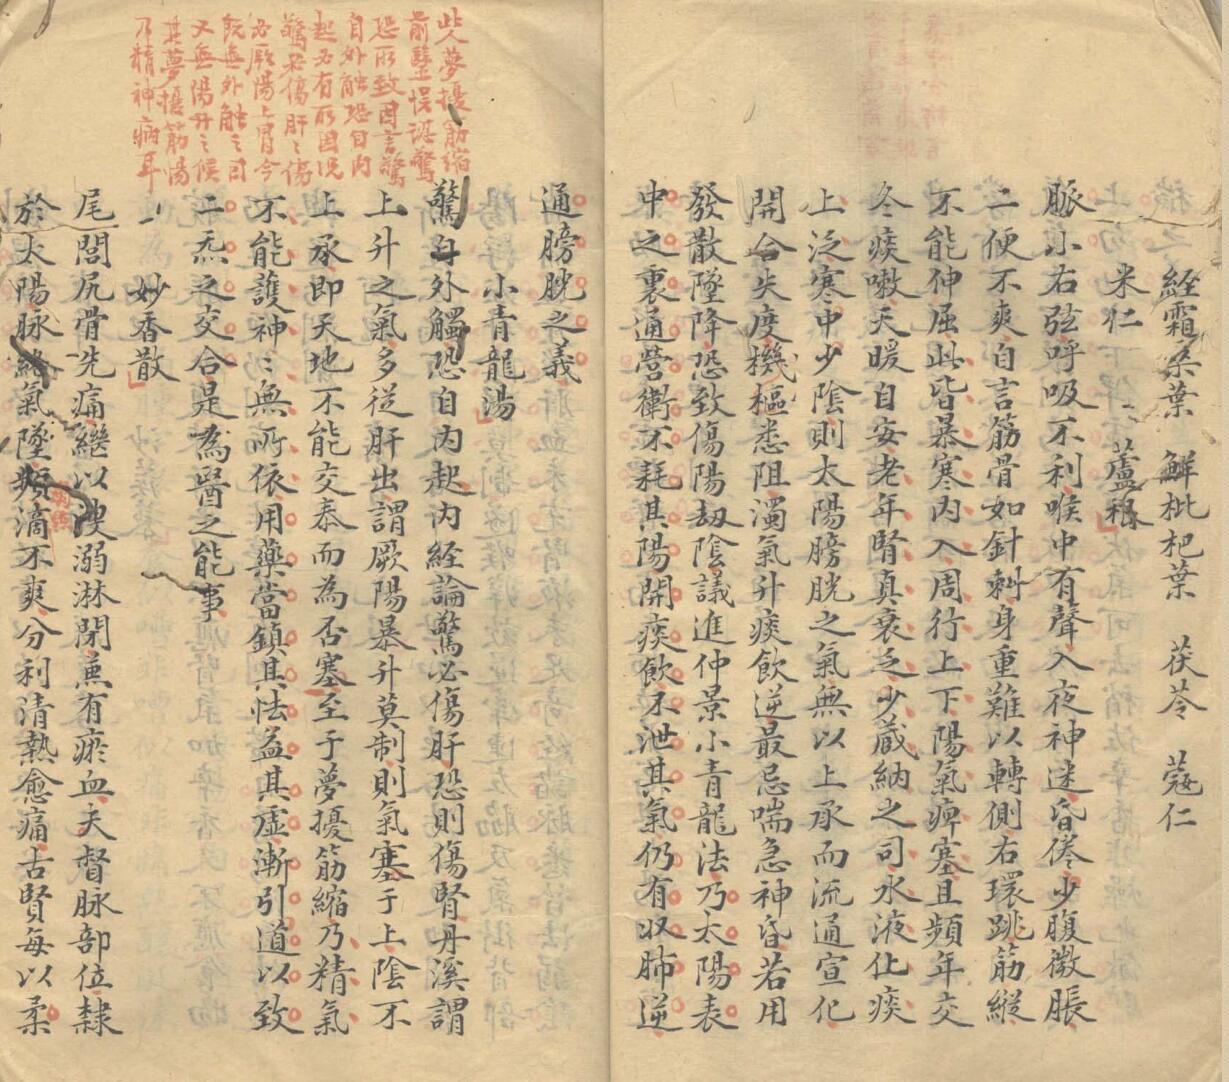 經霜桑葉　鮮枇杷葉　茯苓　蔻仁
米仁　蘆根
脈小右弦呼吸不利喉中有聲入夜神迷昏倦少腹微脹
二便不爽自言筋骨如針刺身重難以轉側右環跳筋縱
不能伸屈此皆暴寒內入周行上下陽氣痺塞且頻年交
冬痰嗽天暖自安老年腎真衰乏少藏納之司水液化痰
上泛寒中少陰則太陽膀胱之氣無以上承而流通宣化
開合失度機樞悉阻濁氣升痰飲逆最忌喘急神昏若用
發散墜降恐致傷陽劫陰議進仲景小青龍法乃太陽表
中之裏通營衛不耗其陽開痰飲不泄其氣仍有収肺逆
通膀胱之義
小青龍湯
驚自外觸恐自內起內經論驚必傷肝恐則傷腎丹溪謂
上升之氣多從肝出謂厥陽暴升莫制則氣塞于上陰不
上承即天地不能交泰而為否塞至于夢擾筋縮乃精氣
不能護神神無所依用藥當鎮其怯益其虛漸引道以致
二炁之交合是為醫之能事
妙香散
尾閭尻骨先痛繼以溲溺淋閉蕪有瘀血夫督脉部位隸
於太陽脉絡氣墜頻滴不爽分利清熱愈痛古賢每以柔
此人夢擾筋縮
前醫悞認驚
恐所致因言驚
自外觸恐自內
起必有所因況
驚必傷肝肝傷
必厥陽上冒今
既無外觸之司
又無陽升之候
其夢擾筋惕
乃精神病耳